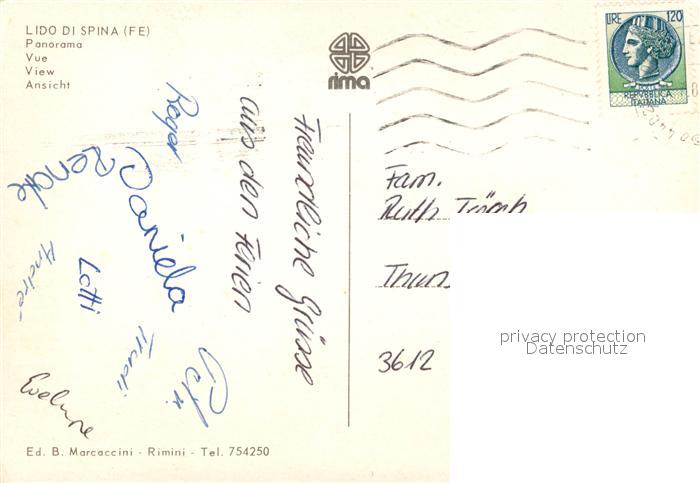 LIDO DI SPINA (FE)
Panorama
Vue
View
Ansicht
rima
LIRE 120
REPUBBLICA
ITALIANA
Freundliche Grüsse
aus den Ferien
Roger
Renate
Daniela
Lotti
André
Trudi
Evelyne
Fam.
Ruth
3612
privacy protection
Datenschutz
Ed. B. Marcaccini - Rimini - Tel. 754250